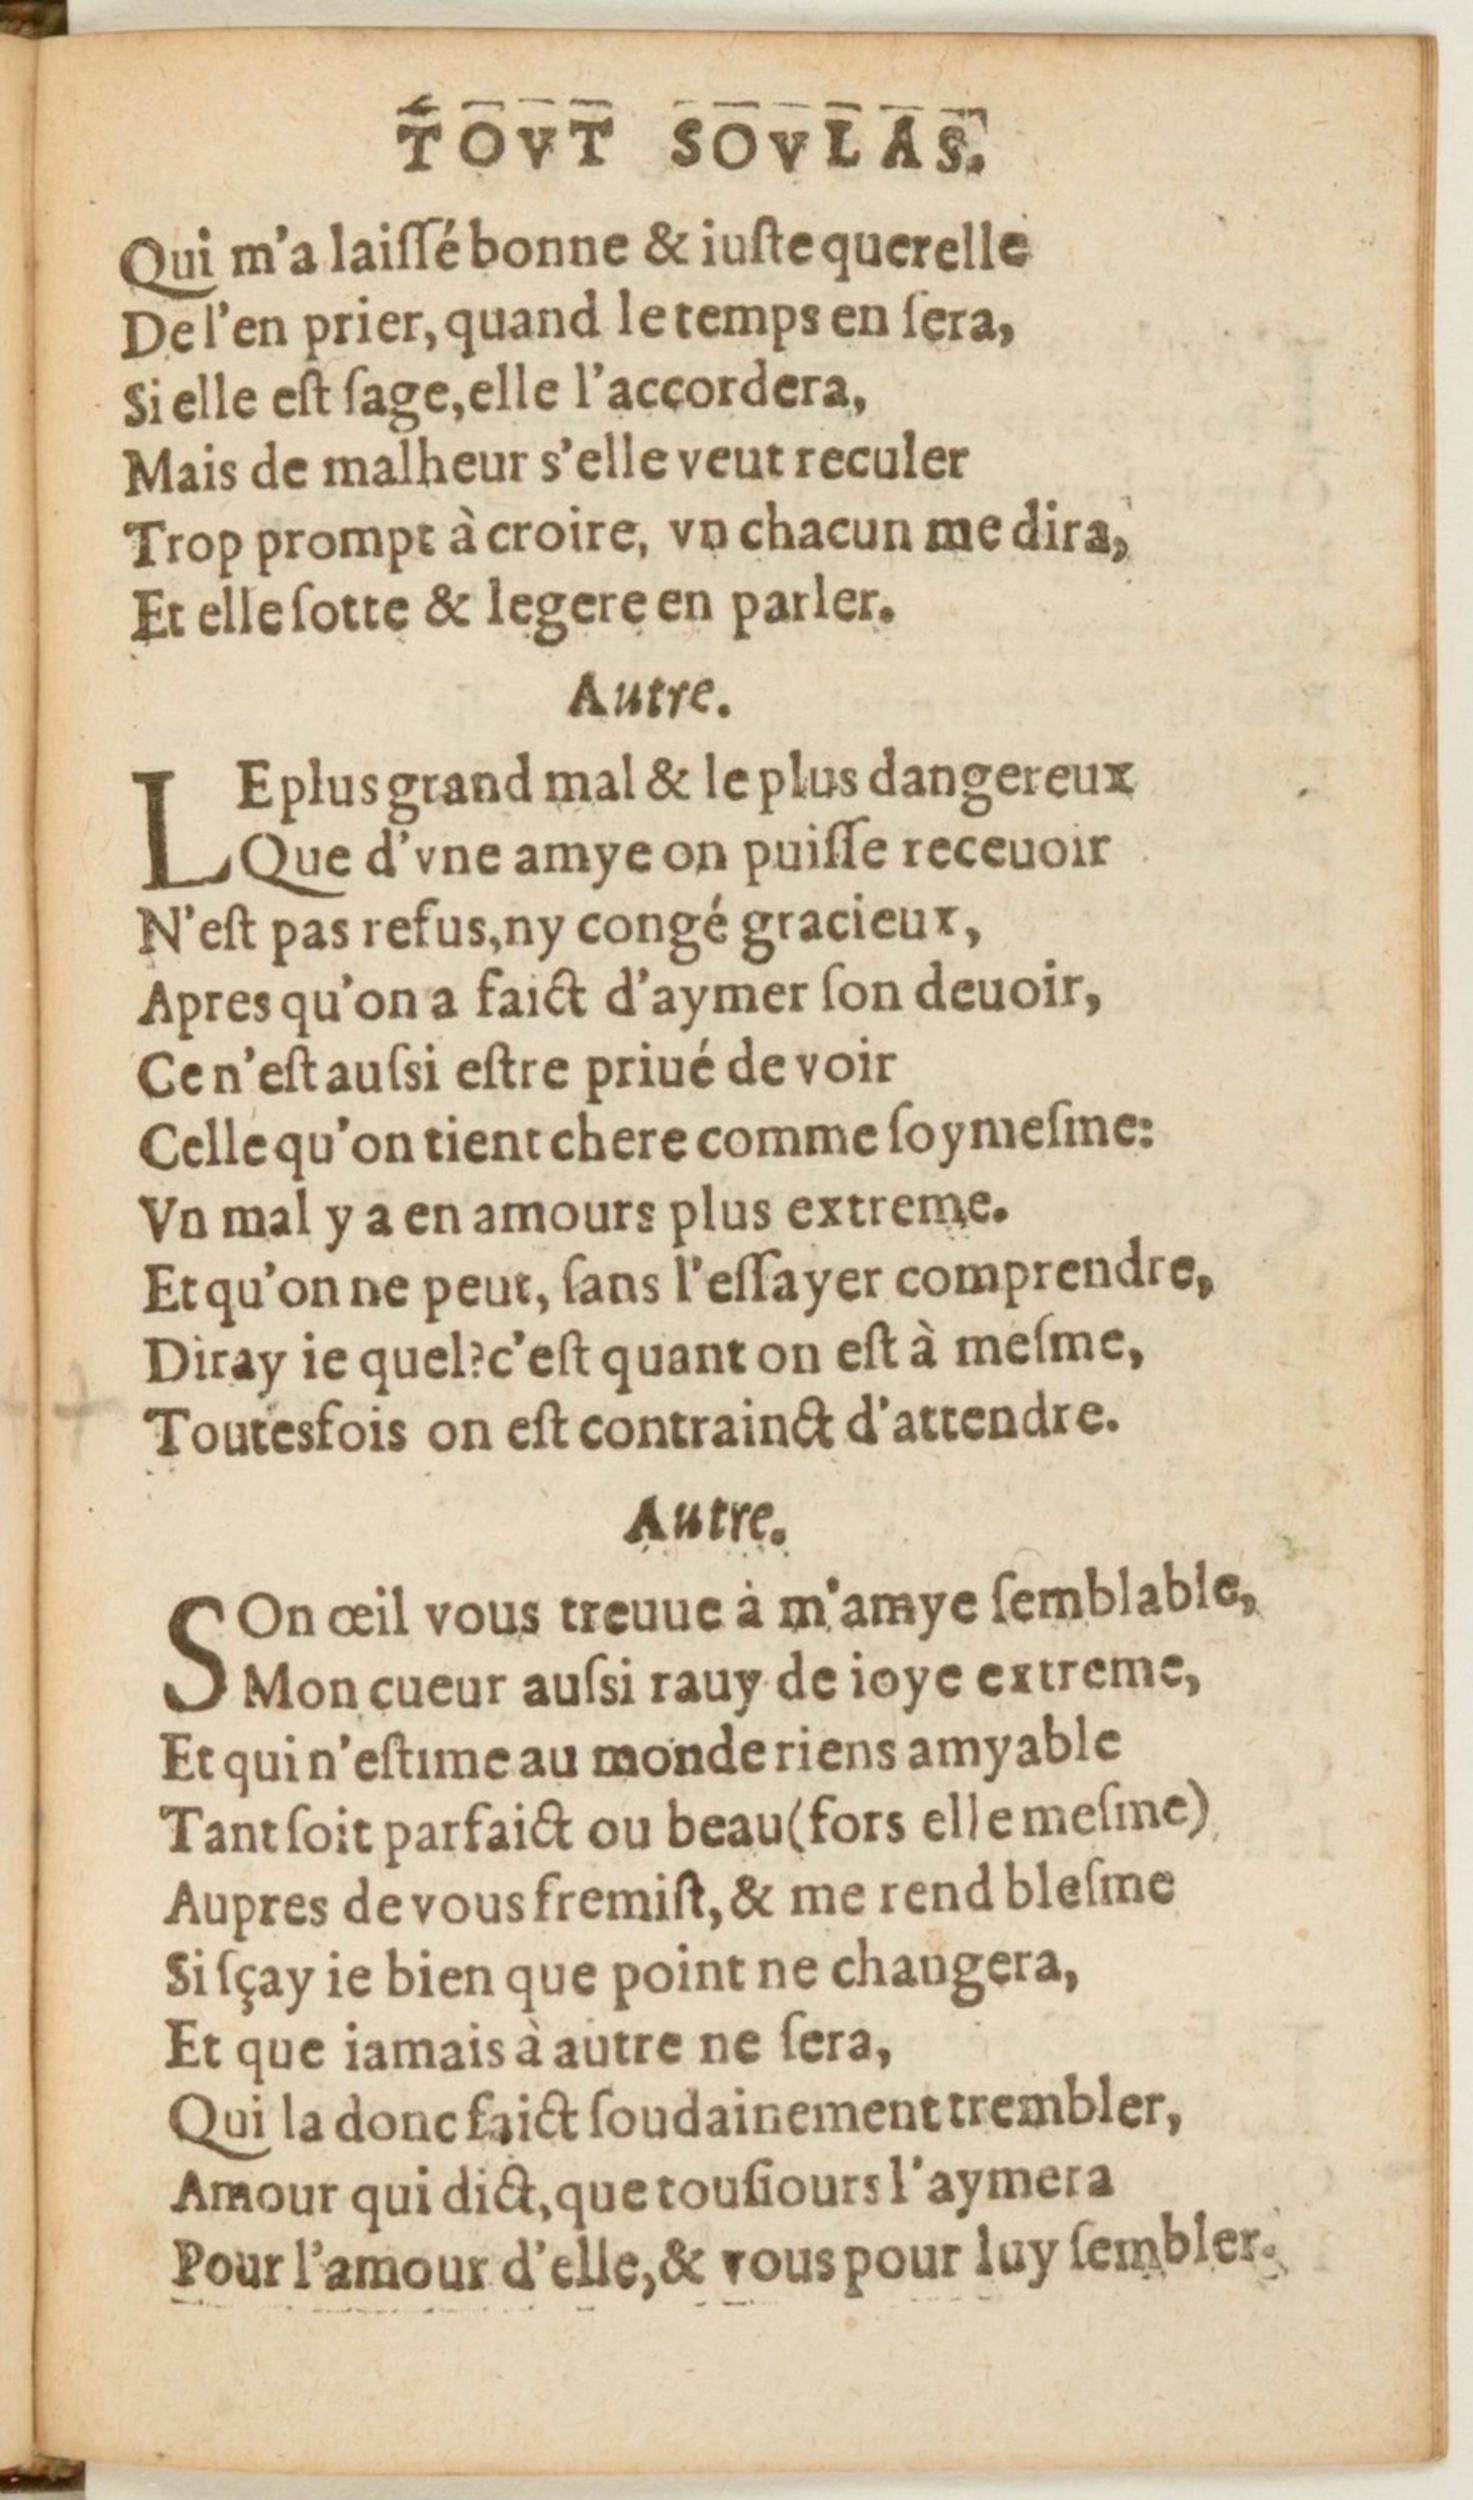 TOVT SOVLAS.
Qui m'a laiſſé bonne & iuſte querelle
De l'en prier, quand le temps en ſera,
Si elle eſt ſage, elle l'accordera,
Mais de malheur s'elle veut reculer
Trop prompt à croire, vn chacun me dira,
Et elle ſotte & legere en parler.
Autre.
LE plus grand mal & le plus dangereux
Que d'vne amye on puiſſe receuoir
N'eſt pas refus, ny congé gracieux,
Apres qu'on a faict d'aymer ſon deuoir,
Ce n'eſt auſsi eſtre priué de voir
Celle qu'on tient chere comme ſoymeſme:
Vn mal y a en amours plus extreme.
Et qu'on ne peut, ſans l'eſſayer comprendre,
Diray ie quel? c'eſt quant on eſt à meſme,
Toutesfois on eſt contrainct d'attendre.
Autre.
SOn œil vous treuue à m'amye ſemblable,
Mon cueur auſsi rauy de ioye extreme,
Et qui n'eſtime au monde riens amyable
Tant ſoit parfaict ou beau (fors elle meſme)
Aupres de vous fremiſt, & me rend bleſme
Si ſçay ie bien que point ne changera,
Et que iamais à autre ne ſera,
Qui la donc faict ſoudainement trembler,
Amour qui dict, que touſiours l'aymera
Pour l'amour d'elle, & vous pour luy ſembler.